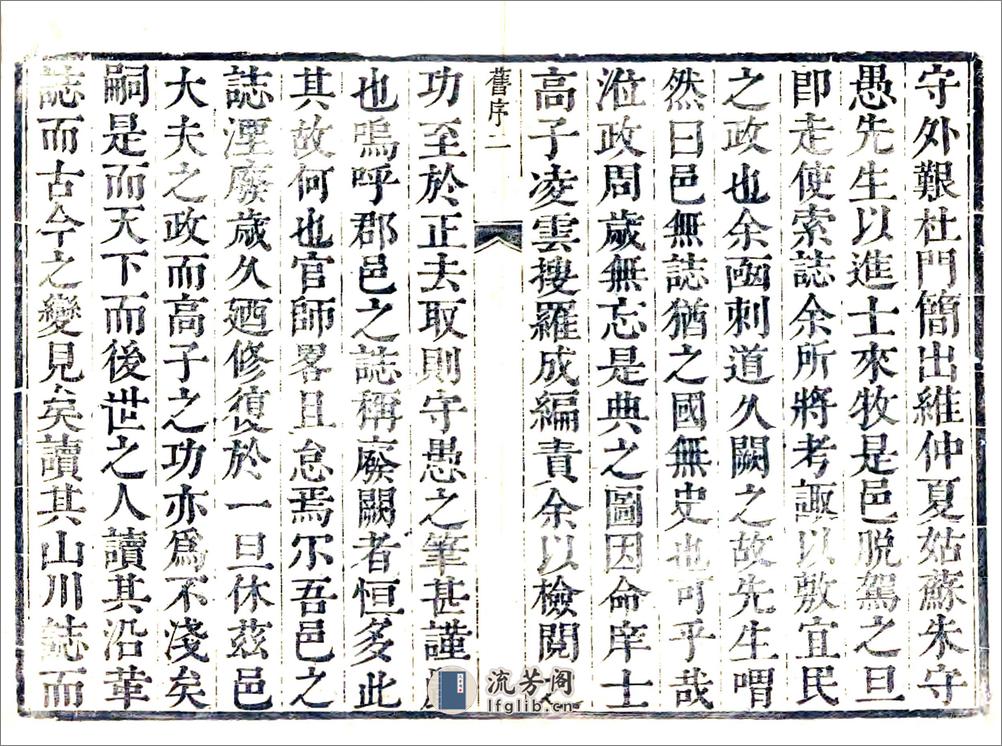 守外艱杜門簡出維仲夏姑蘇朱守
愚先生以進士來牧是邑脫駕之旦
卽走使索誌余所將考諏以敷宜民
之政也余函刺道久闕之故先生喟
然曰邑無誌猶之國無史也可乎哉
涖政周歲無忘是典之圖因命庠士
高子凌雲搜羅成編責余以檢閱
舊序二
功至於正去取則守愚之筆甚謹
也嗚呼郡邑之誌稱廢闕者恒多此
其故何也官師畧且怠焉尔吾邑之
誌湮廢歲久廼修復於一旦休茲邑
大夫之政而高子之功亦爲不淺矣
嗣是而天下而後世之人讀其沿革
誌而古今之變見矣讀其山川誌而
流芳阁
lfglib.cn